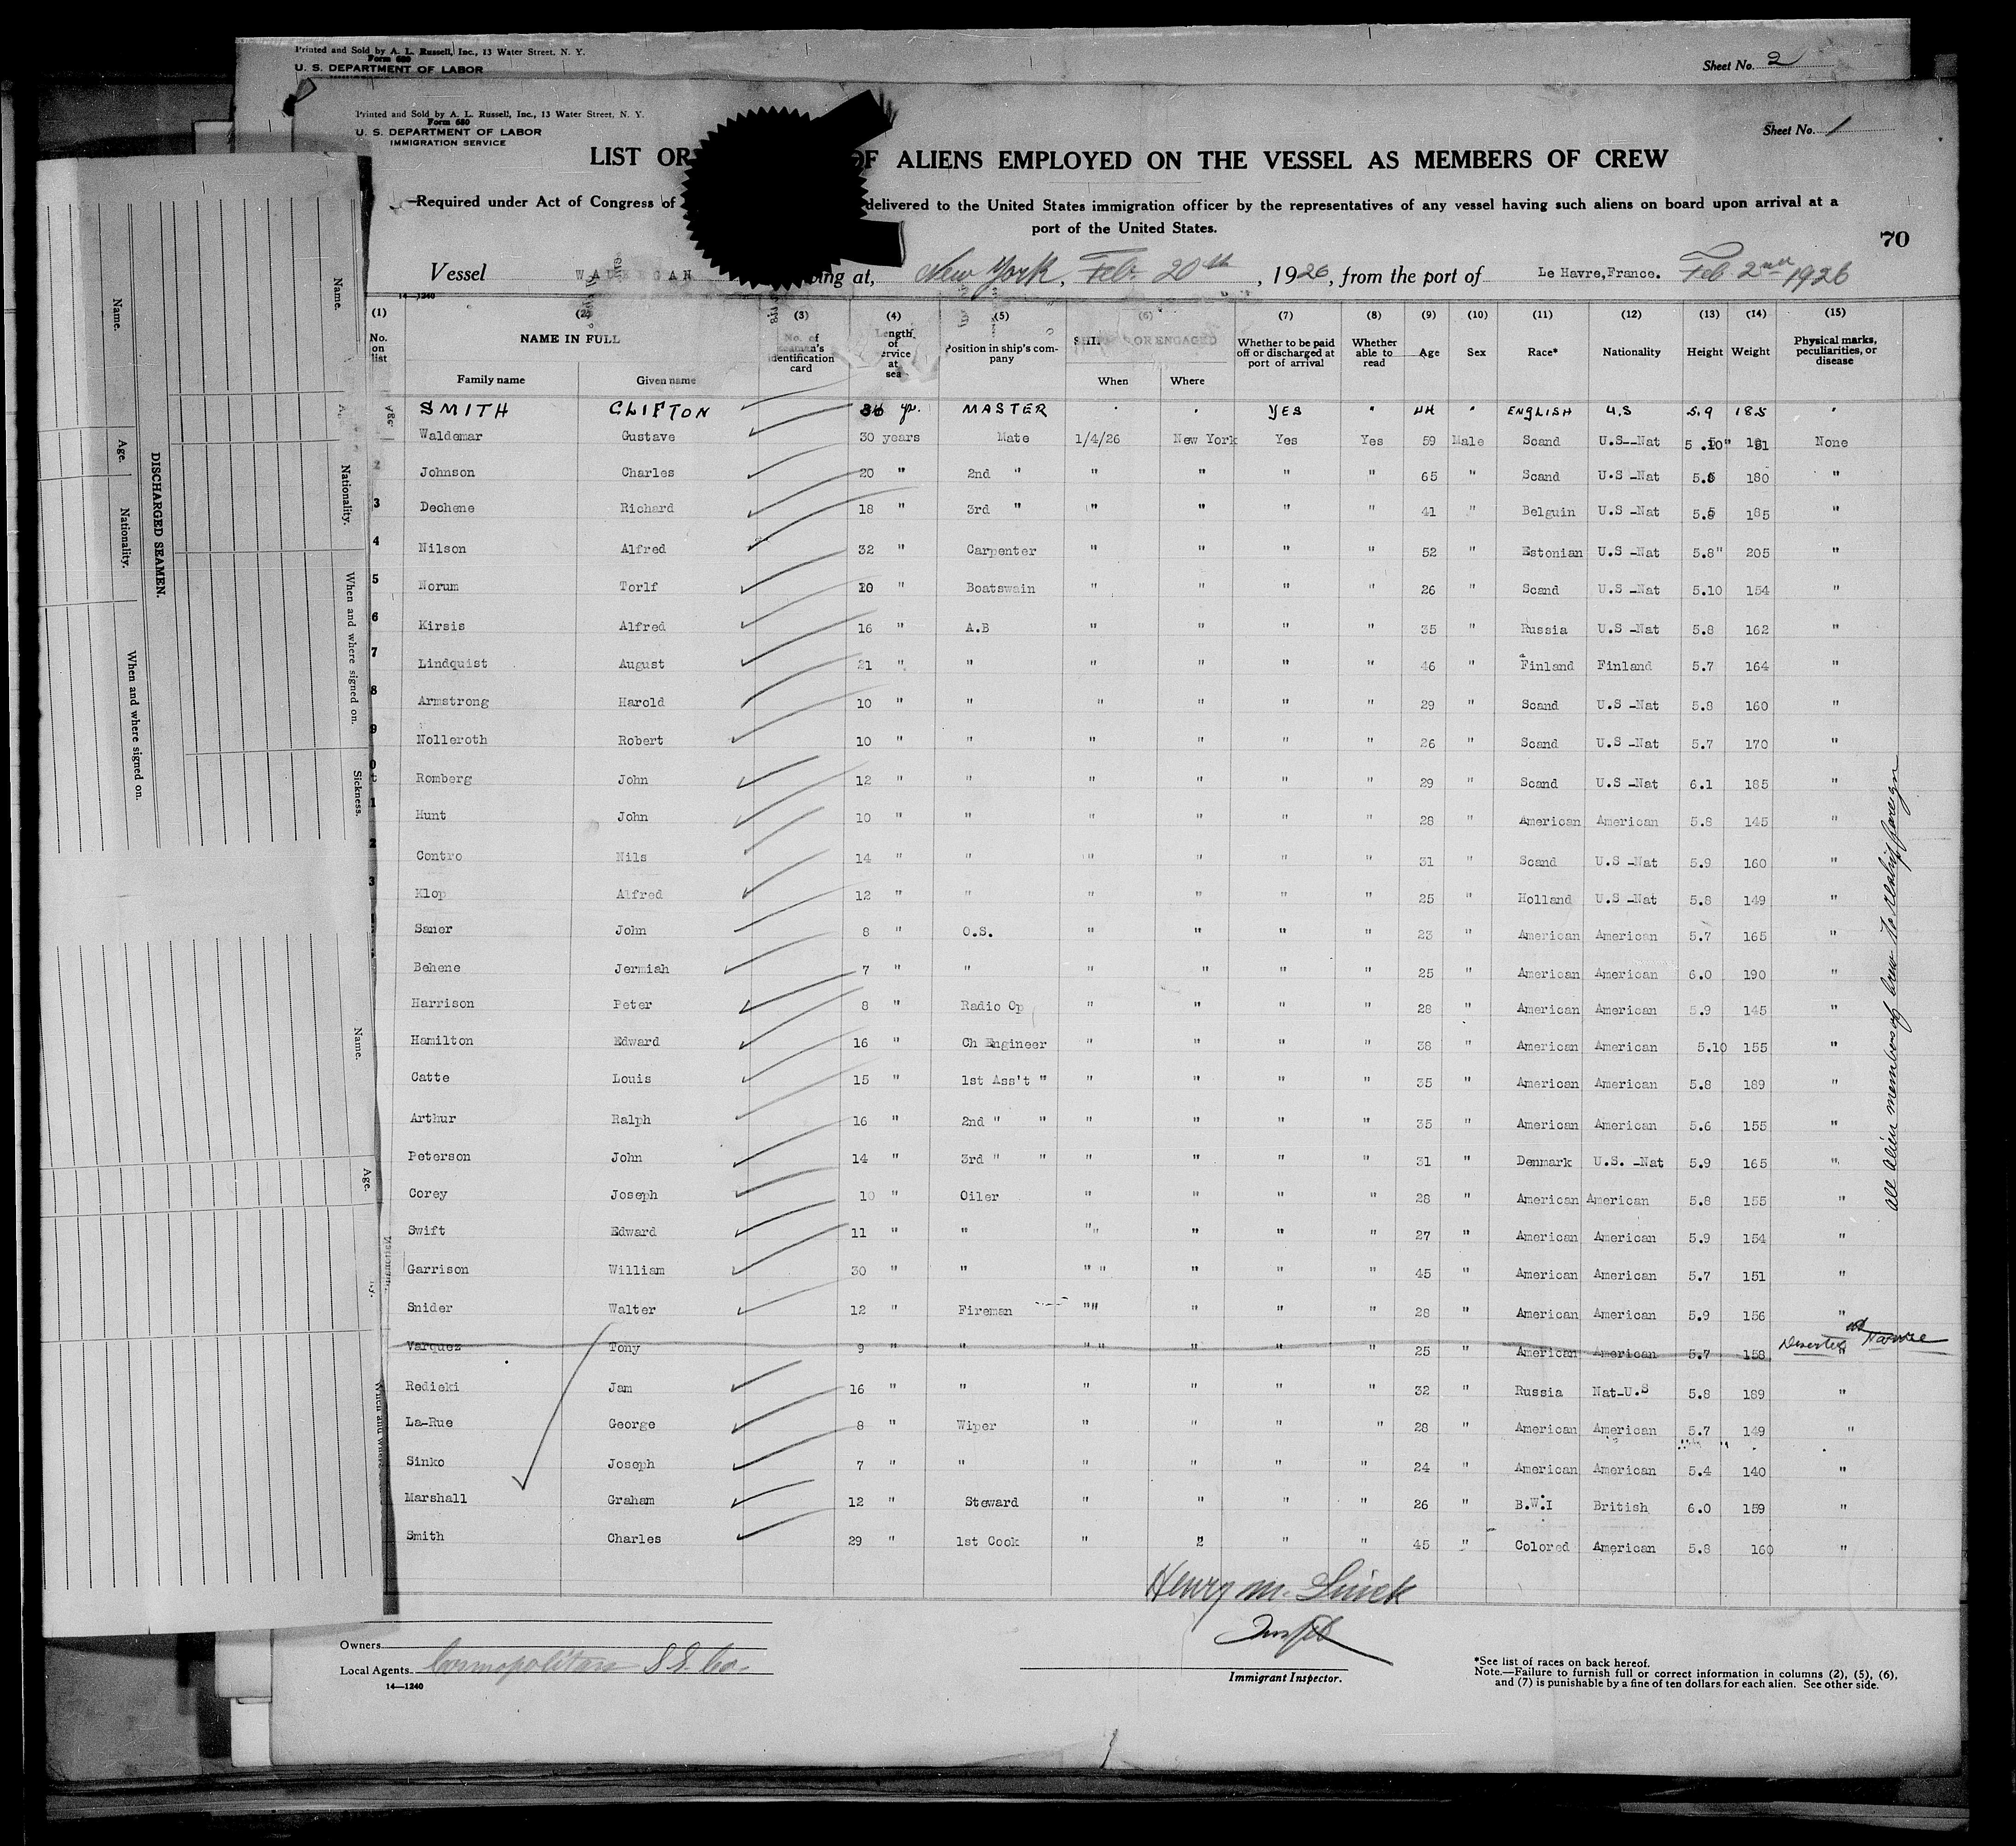 Printed and Sold by A. L. Russell, Inc., 13 Water Street, N. Y.
Form 680
U. S. DEPARTMENT OF LABOR
Sheet No. 2
Printed and Sold by A. L. Russell, Inc., 13 Water Street, N. Y.
Form 680
U. S. DEPARTMENT OF LABOR
IMMIGRATION SERVICE
Sheet No. 1
LIST OR OF ALIENS EMPLOYED ON THE VESSEL AS MEMBERS OF CREW
Required under Act of Congress of delivered to the United States immigration officer by the representatives of any vessel having such aliens on board upon arrival at a
port of the United States.
70
Vessel at, New York, Feb. 20th, 1926, from the port of Le Havre,France. Feb 2nd 1926
14—1240
(1) (2) (3) (4) (5) (6) (7) (8) (9) (10) (11) (12) (13) (14) (15)
No. on list NAME IN FULL No. of seaman's identification card Length of service at sea Position in ship's company SHIPPED OR ENGAGED Whether to be paid off or discharged at port of arrival Whether able to read Age Sex Race* Nationality Height Weight Physical marks, peculiarities, or disease
Family name Given name When Where
SMITH CLIFTON yr. MASTER " " YES " 44 " ENGLISH U.S 5.9 185 "
Waldemar Gustave 30 years Mate 1/4/26 New York Yes Yes 59 Male Scand U.S--Nat None
2 Johnson Charles 20 " 2nd " " " " " 65 " Scand U.S -Nat 180 "
3 Dechene Richard 18 " 3rd " " " " " 41 " Belguin U.S -Nat 185 "
4 Nilson Alfred 32 " Carpenter " " " " 52 " Estonian U.S -Nat 5.8" 205 "
5 Norum Torlf 20 " Boatswain " " " " 26 " Scand U.S -Nat 5.10 154 "
6 Kirsis Alfred 16 " A.B " " " " 35 " Russia U.S -Nat 5.8 162 "
7 Lindquist August 21 " " " " " " 46 " Finland Finland 5.7 164 "
8 Armstrong Harold 10 " " " " " " 29 " Scand U.S -Nat 5.8 160 "
9 Nolleroth Robert 10 " " " " " " 26 " Scand U.S -Nat 5.7 170 "
0 Romberg John 12 " " " " " " 29 " Scand U.S -Nat 6.1 185 "
1 Hunt John 10 " " " " " " 28 " American American 5.8 145 "
2 Contro Nils 14 " " " " " " 31 " Scand U.S -Nat 5.9 160 "
3 Klop Alfred 12 " " " " " " 25 " Holland U.S -Nat 5.8 149 "
Saner John 8 " O.S. " " " " 23 " American American 5.7 165 "
Behene Jermiah 7 " " " " " " 25 " American American 6.0 190 "
Harrison Peter 8 " Radio Op " " " " 28 " American American 5.9 145 "
Hamilton Edward 16 " Ch Engineer " " " " 38 " American American 5.10 155 "
Catte Louis 15 " 1st Ass't " " " " " 35 " American American 5.8 189 "
Arthur Ralph 16 " 2nd " " " " " " 35 " American American 5.6 155 "
Peterson John 14 " 3rd " " " " " " 31 " Denmark U.S. -Nat 5.9 165 "
Corey Joseph 10 " Oiler " " " " 28 " American American 5.8 155 "
Swift Edward 11 " " "" " " " 27 " American American 5.9 154 "
Garrison William 30 " " " " " " " 45 " American American 5.7 151 "
Snider Walter 12 " Fireman "" " " " 28 " American American 5.9 156 "
Varquez Tony 9 " " " " " " " 25 " American American 5.7 158 " Deserted at Havre
Redieki Jam 16 " " " " " " 32 " Russia Nat-U.S 5.8 189 "
La-Rue George 8 " Wiper " " " " 28 " American American 5.7 149 "
Sinko Joseph 7 " " " " " " 24 " American American 5.4 140 "
Marshall Graham 12 " Steward " " " " 26 " B.W.I British 6.0 159 "
Smith Charles 29 " 1st Cook " 2 " " 45 " Colored American 5.8 160 "
All alien members of crew to reship foreign
Owners
Local Agents Cosmopolitan S.S. Co.
14—1240
Henry M.
Insp
Immigrant Inspector.
*See list of races on back hereof.
Note.—Failure to furnish full or correct information in columns (2), (5), (6),
and (7) is punishable by a fine of ten dollars for each alien. See other side.
DISCHARGED SEAMEN.
Name.
Age.
Nationality.
When and where signed on.
Name.
Nationality.
When and where signed on.
Sickness.
Name.
Age.